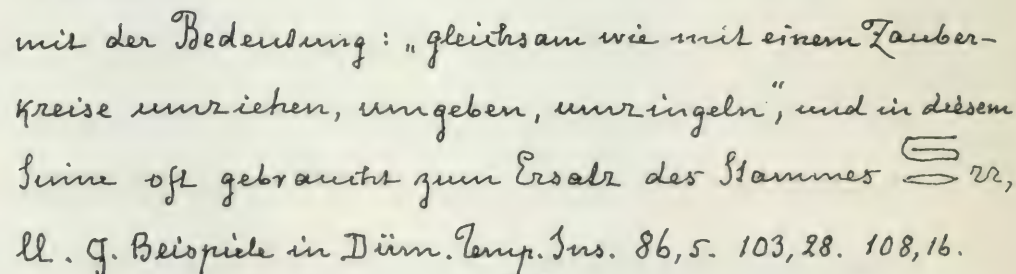 mit der Bedeutung: „gleichsam wie mit einem Zauber-
kreise umziehen, umgeben, umzingeln“, und in diesem
Sinne oft gebraucht zum Ersatz des Stammes rr,
ll. g. Beispiele in Düm. Temp. Ins. 86,5. 103,28. 108,16.